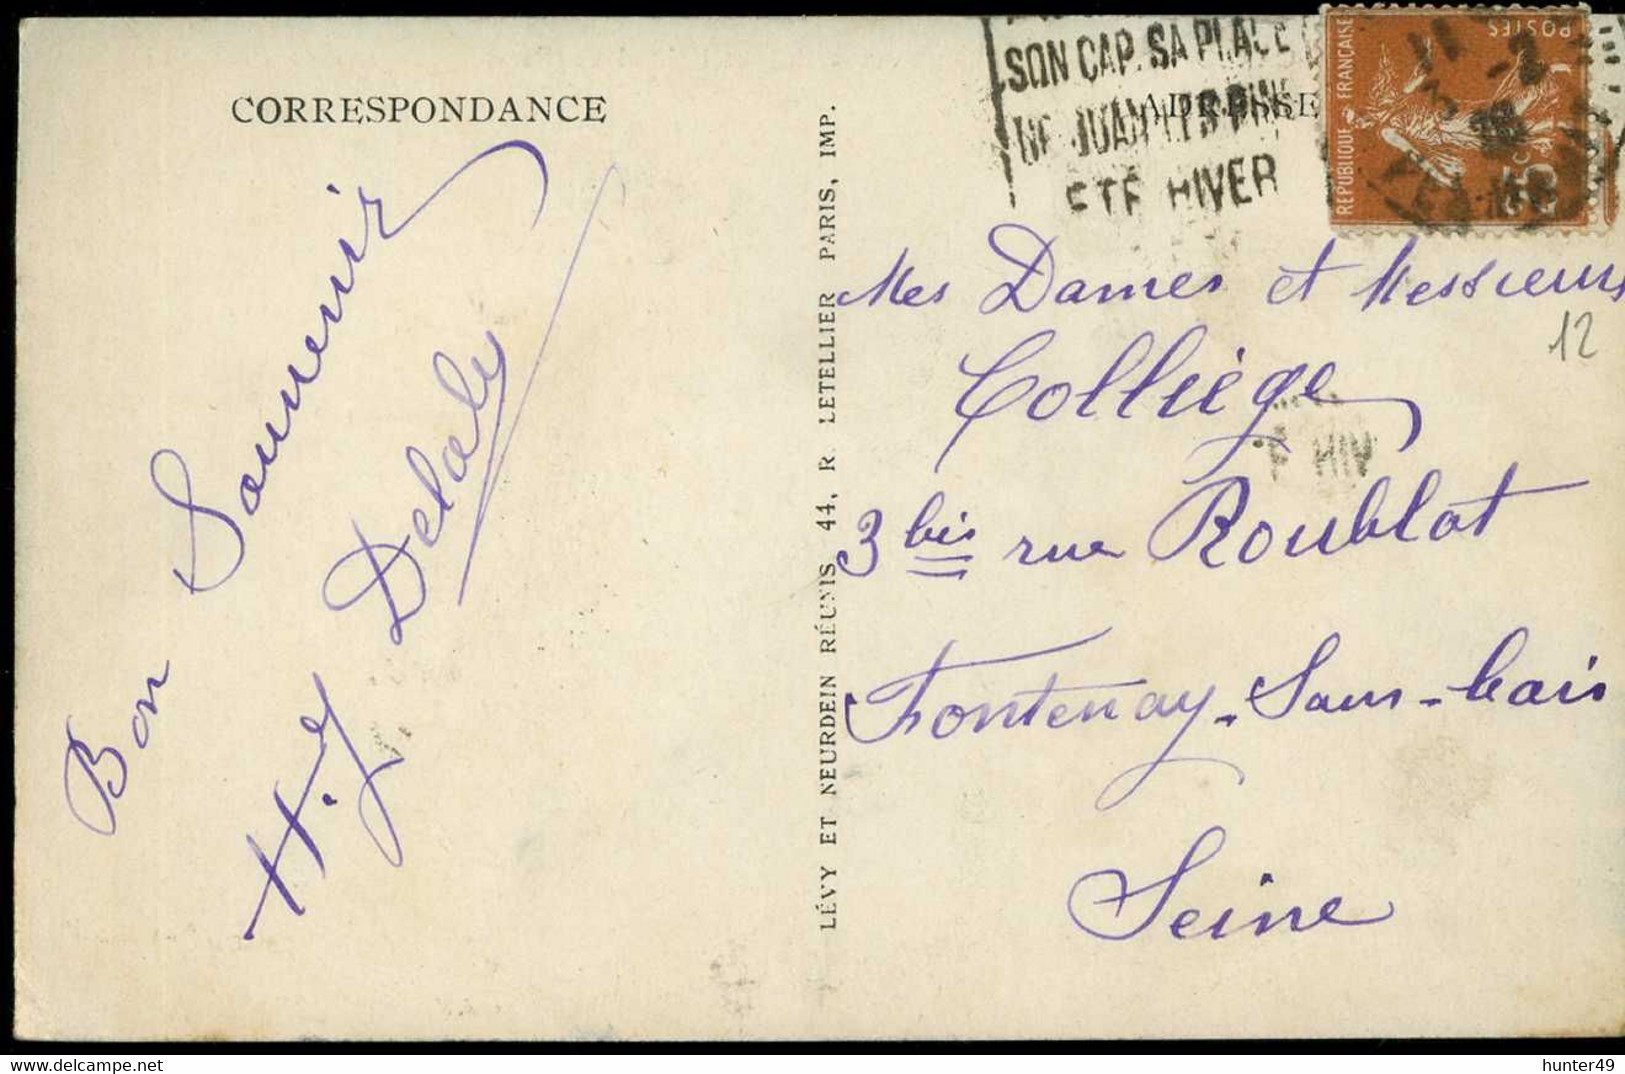 CORRESPONDANCE
SON CAP. SA PLAGE
ADRESSE
ÉTÉ HIVER
RÉPUBLIQUE FRANÇAISE
POSTES
5c
Bon Souvenir
H. Delaby
LÉVY ET NEURDEIN RÉUNIS, 44, R. LETELLIER PARIS, IMP.
Mes Dames et Messieurs
Colliège
12
3 bis rue Roublot
Fontenay-Sous-bois
Seine
É HIV
hunter49